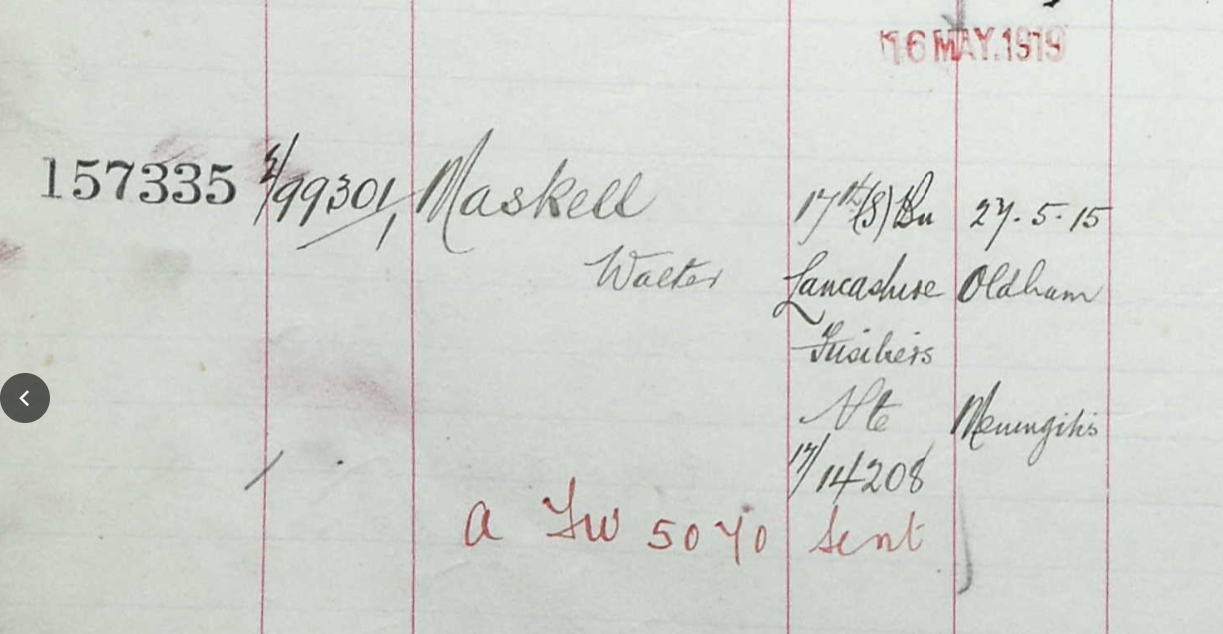 16 MAY.1919
157335 E/99301/1 Maskell 17th (S) Bn 27.5.15
Walter Lancashire Oldham
Fusiliers
Pte Meningitis
17/14208
a FW 5070 sent